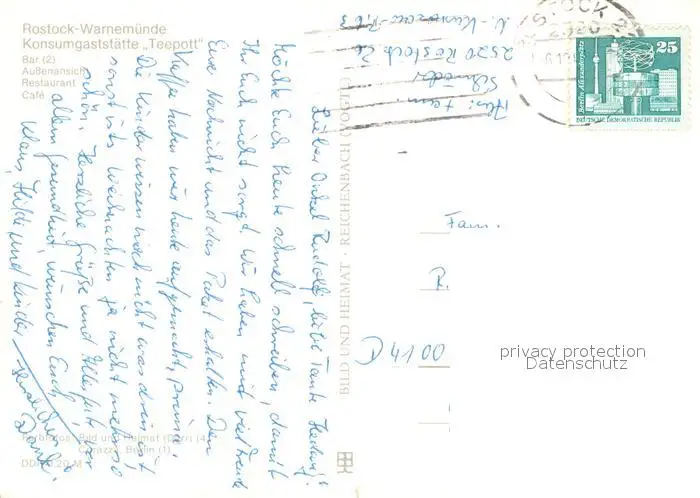 Rostock-Warnemünde
Konsumgaststätte „Teepott"
Bar (2)
Außenansicht
Restaurant
Café
Lieber Onkel Rudolf, liebe Tante Hedwig!
Möchte Euch heute schnell schreiben, damit
Ihr Euch nicht sorgt. Wir haben mit viel Freude
Eure Nachricht und das Paket erhalten. Den
Kaffee haben wir heute aufgemacht, prima.
Die Kinder wissen noch nicht was drin ist
sonst ists Weihnachten ja nicht mehr so
schön. Herzliche Grüße und alles Gute, vor
allem Gesundheit wünschen Euch
Klaus, Hilde und Kinder
Danke
Bild und Heimat (4)
Berlin (1)
BILD UND HEIMAT · REICHENBACH (VOGTL)
Abs: Fam.
Schröder
2520 Rostock 22
STOCK
25
Berlin Alexanderplatz
DEUTSCHE DEMOKRATISCHE REPUBLIK
Fam.
R.
D 4100
privacy protection
Datenschutz